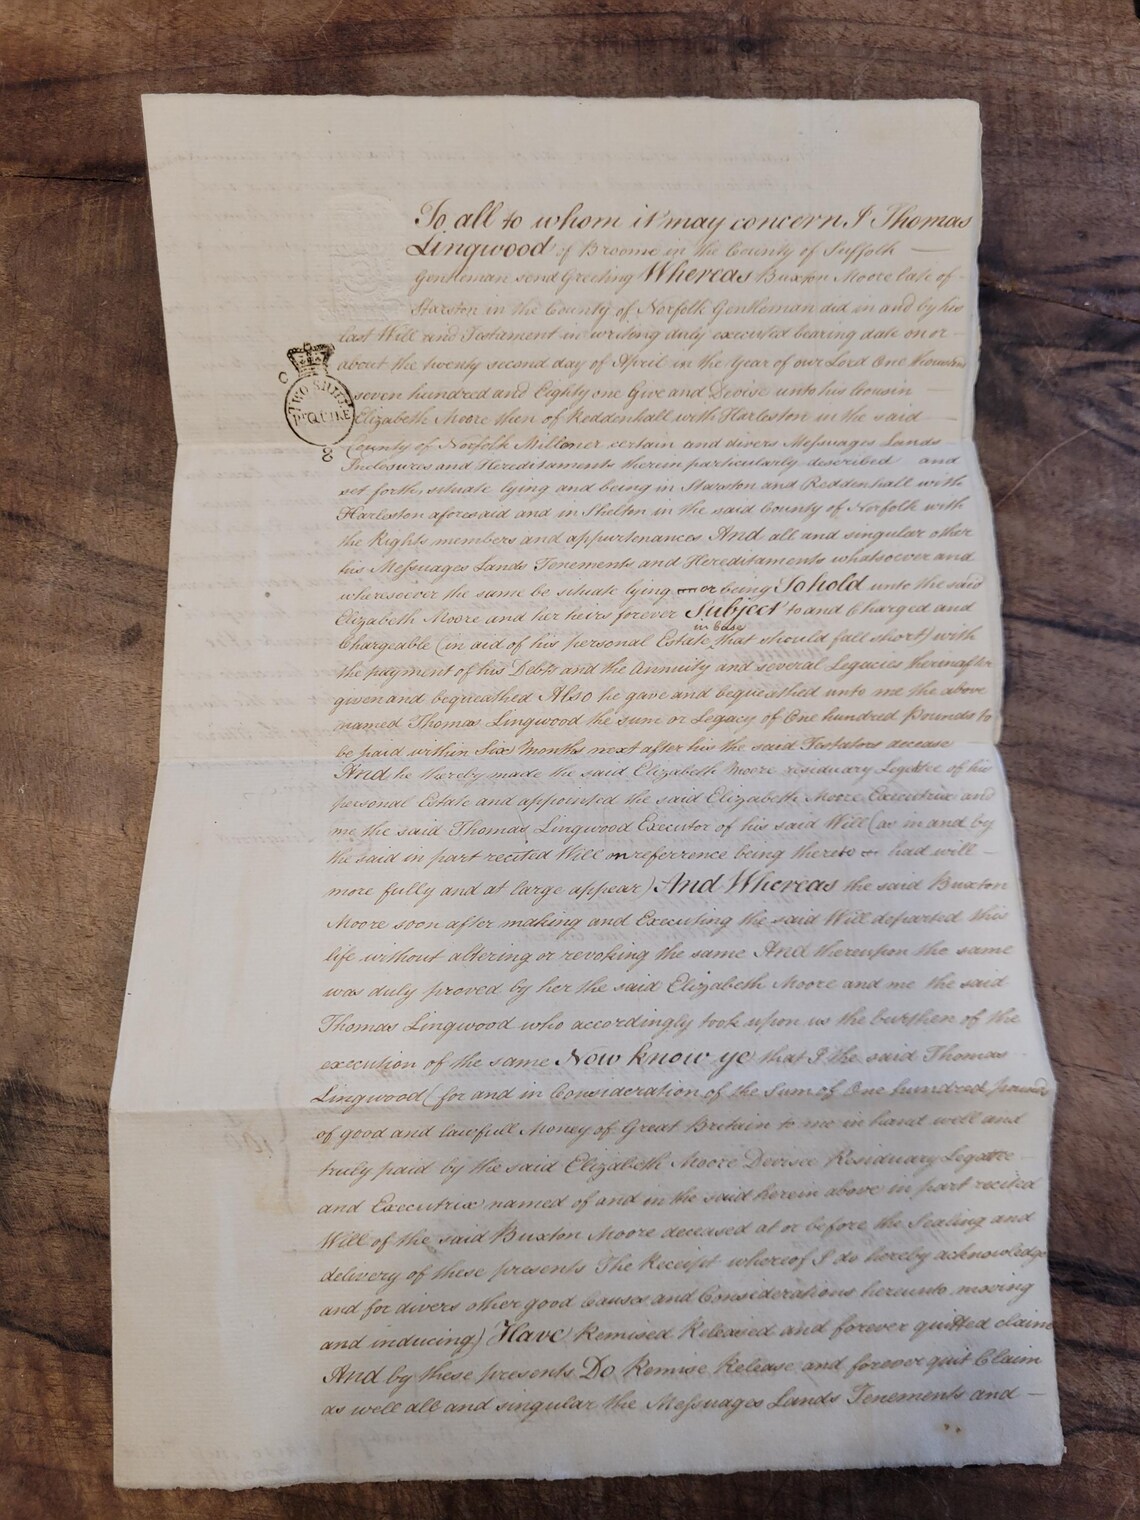 To all to whom it may concern I Thomas
Lingwood of Broome in the County of Suffolk
Gentleman send Greeting Whereas Buxton Moore late of
Starston in the County of Norfolk Gentleman did in and by his
last Will and Testament in writing duly executed bearing date on or
about the twenty second day of April in the Year of our Lord One thousand
seven hundred and Eighty one Give and Devise unto his Cousin
Elizabeth Moore then of Reddenhall with Harleston in the said
County of Norfolk Milloner certain and divers Messuages Lands
Inclosures and Hereditaments therein particularly described and
set forth situate lying and being in Starston and Reddenhall with
Harleston aforesaid and in Shelton in the said County of Norfolk with
the Rights members and appurtenances And all and singular other
his Messuages Lands Tenements and Hereditaments whatsoever and
wheresoever the same be situate lying or being To hold unto the said
Elizabeth Moore and her heirs forever Subject to and Charged and
Chargeable (in aid of his personal Estate in Case that should fall short) with
the payment of his Debts and the Annuity and several Legacies thereinafter
given and bequeathed Also he gave and bequeathed unto me the above
named Thomas Lingwood the sum or Legacy of One hundred Pounds to
be paid within Six Months next after his the said Testators decease
And he thereby made the said Elizabeth Moore residuary Legatee of his
personal Estate and appointed the said Elizabeth Moore Executrix and
me the said Thomas Lingwood Executor of his said Will (as in and by
the said in part recited Will on referrence being thereto had will
more fully and at large appear) And Whereas the said Buxton
Moore soon after making and Executing the said Will departed this
life without altering or revoking the same And thereupon the same
was duly proved by her the said Elizabeth Moore and me the said
Thomas Lingwood who accordingly took upon us the burthen of the
execution of the same Now know ye that I the said Thomas
Lingwood (for and in Consideration of the Sum of One hundred pounds
of good and lawfull Money of Great Britain to me in hand well and
truly paid by the said Elizabeth Moore Devisee Residuary Legatee
and Executrix named of and in the said herein above in part recited
Will of the said Buxton Moore deceased at or before the Sealing and
delivery of these presents The Receipt whereof I do hereby acknowledge
and for divers other good Causes and Considerations hereunto moving
and inducing) Have Remised Released and forever quitted claim
And by these presents Do Remise Release and forever quit Claim
as well all and singular the Messuages Lands Tenements and
TWO SHILL
pr QUIRE